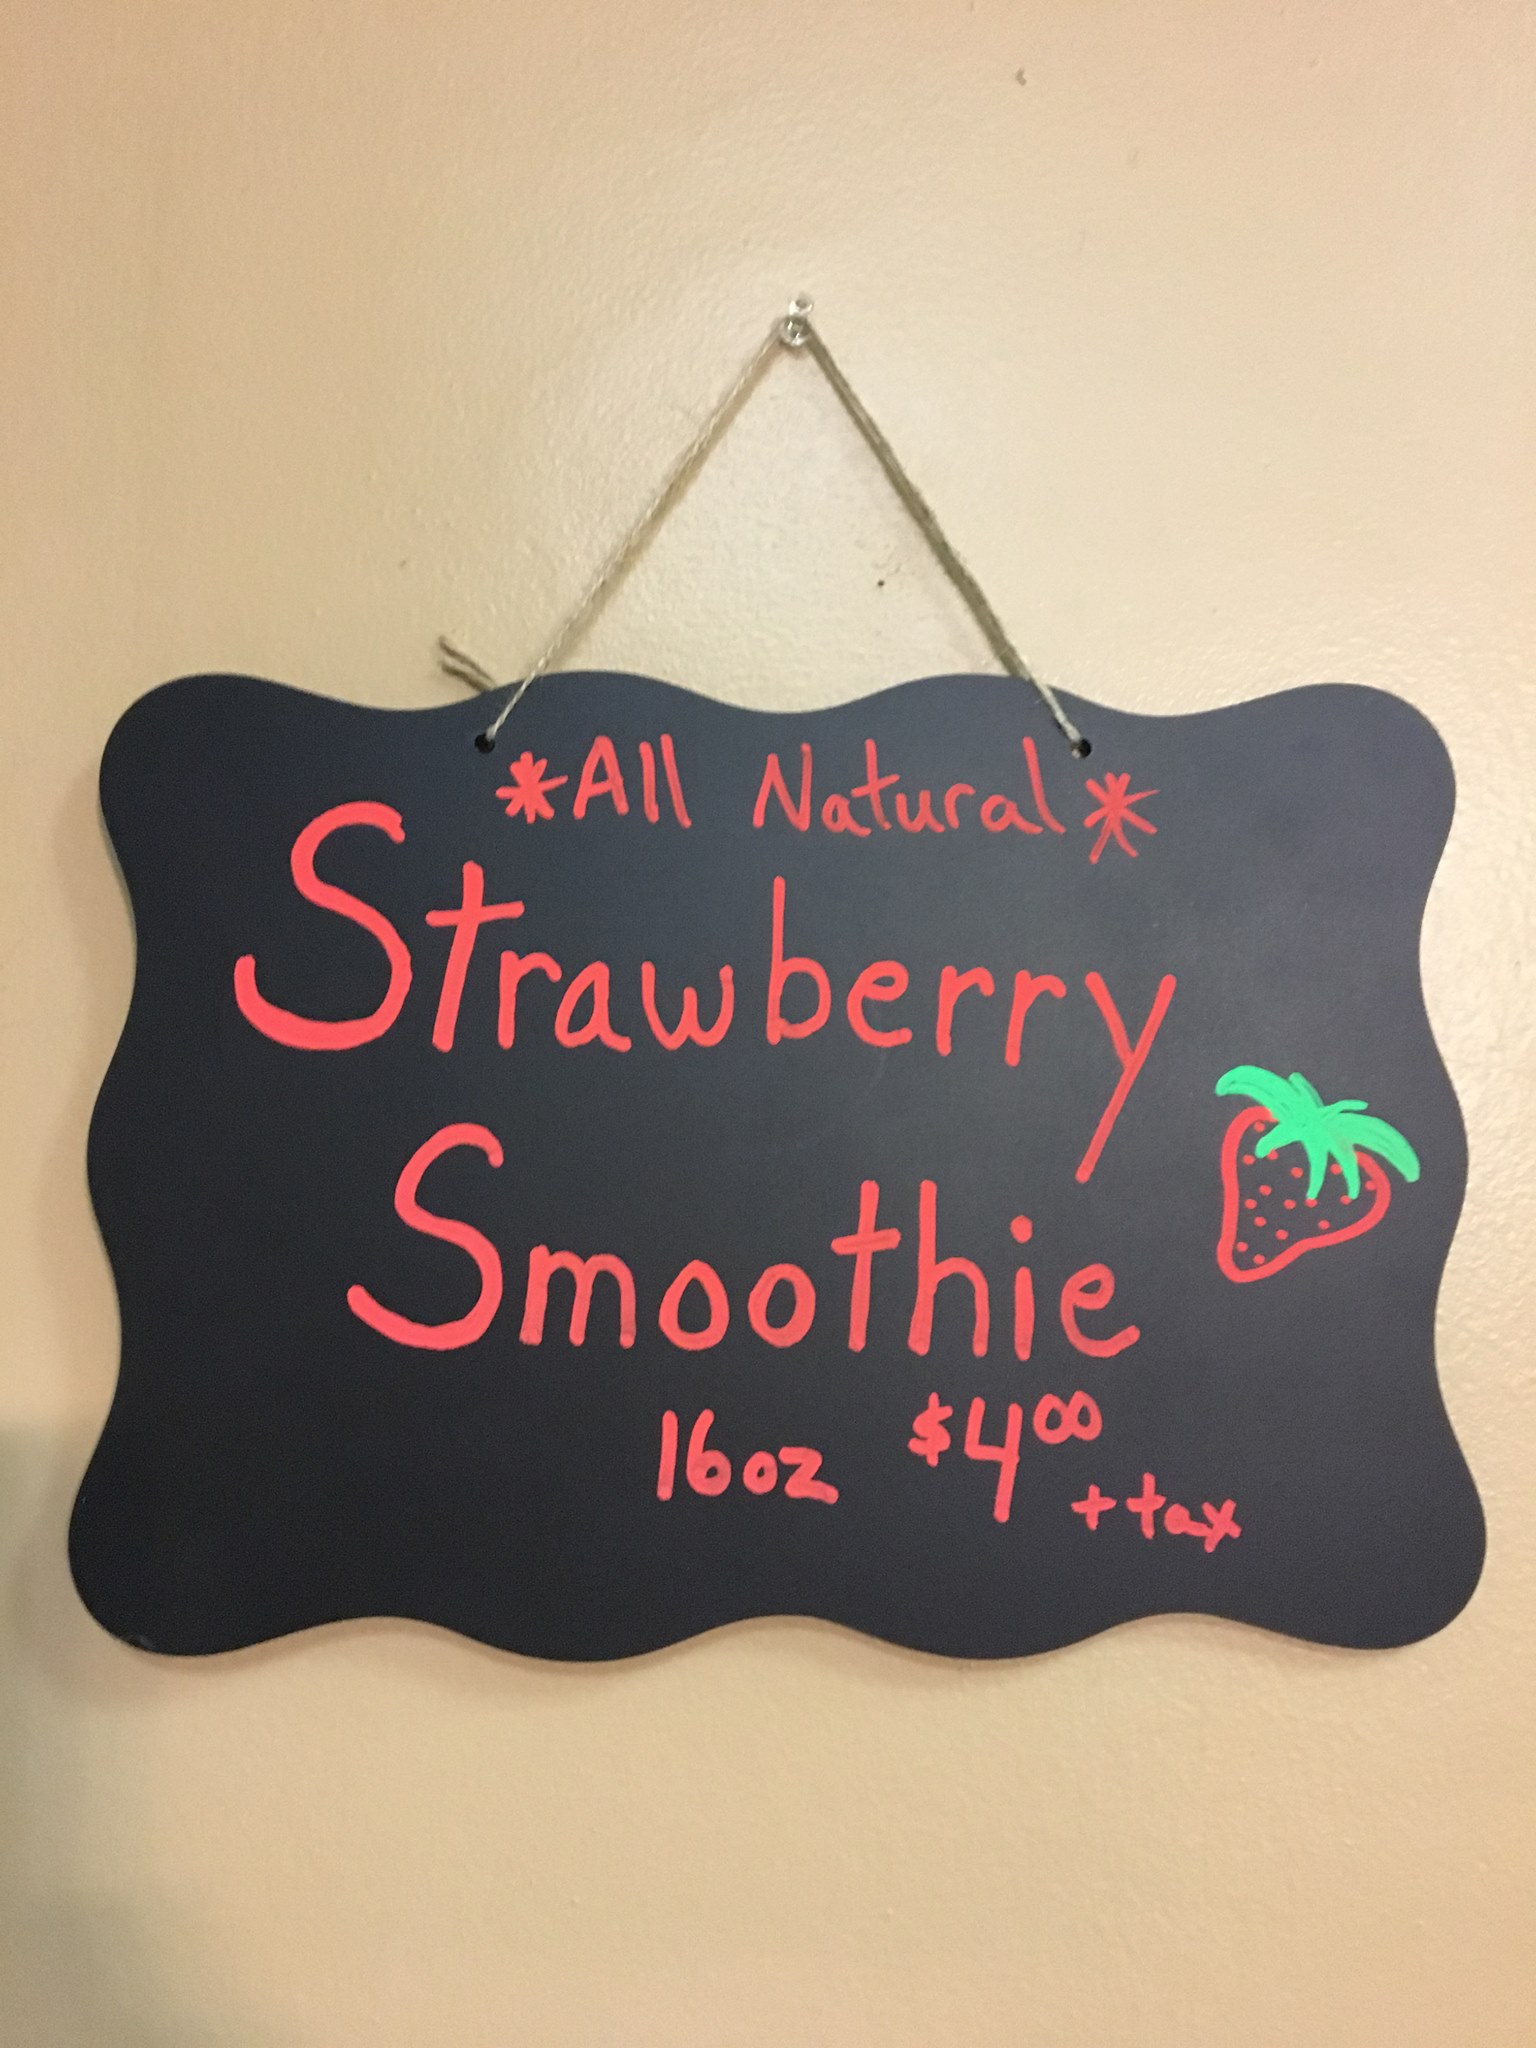 *All Natural*
Strawberry
Smoothie
16oz $400 + tax